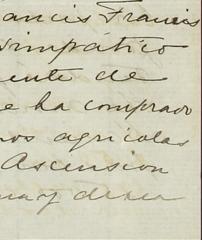 ancis Francis
simpático
ente de
e ha comprado
nos agricolas
Ascension
may desea